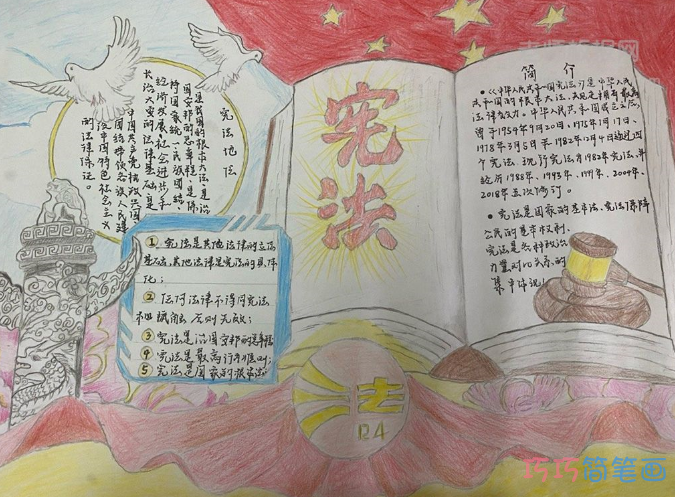 宪法地位
是我国的根本大法,是治
国安邦的总章程,是保
持国家统一、民族团结、
经济发展、社会进步和
长治久安的法律基础,是
中国共产党执政兴国、
团结带领各族人民建
设中国特色社会主义
的法律保证。
① 宪法是其他法律的立法
基础,其他法律是宪法的具体
化;
② 任何法律不得同宪法
相抵触,否则无效;
③ 宪法是治国安邦的总章程
④ 宪法是最高行为准则;
⑤ 宪法是国家的根本法
宪法
简介
• 《中华人民共和国宪法》是中华人民
共和国的根本大法,
法律效力。中华人民共和国成立后,
曾于1954年9月20日、1975年1月17日、
1978年3月5日和1982年12月4日通过四
个宪法,现行宪法为1982年宪法,并
经历1988年、1993年、1999年、2004年、
2018年五次修订。
• 宪法是国家的基本法,宪法保障
公民的基本权利。
宪法是各种政治
力量对比关系的
集中体现。
法
12.4
巧巧简笔画